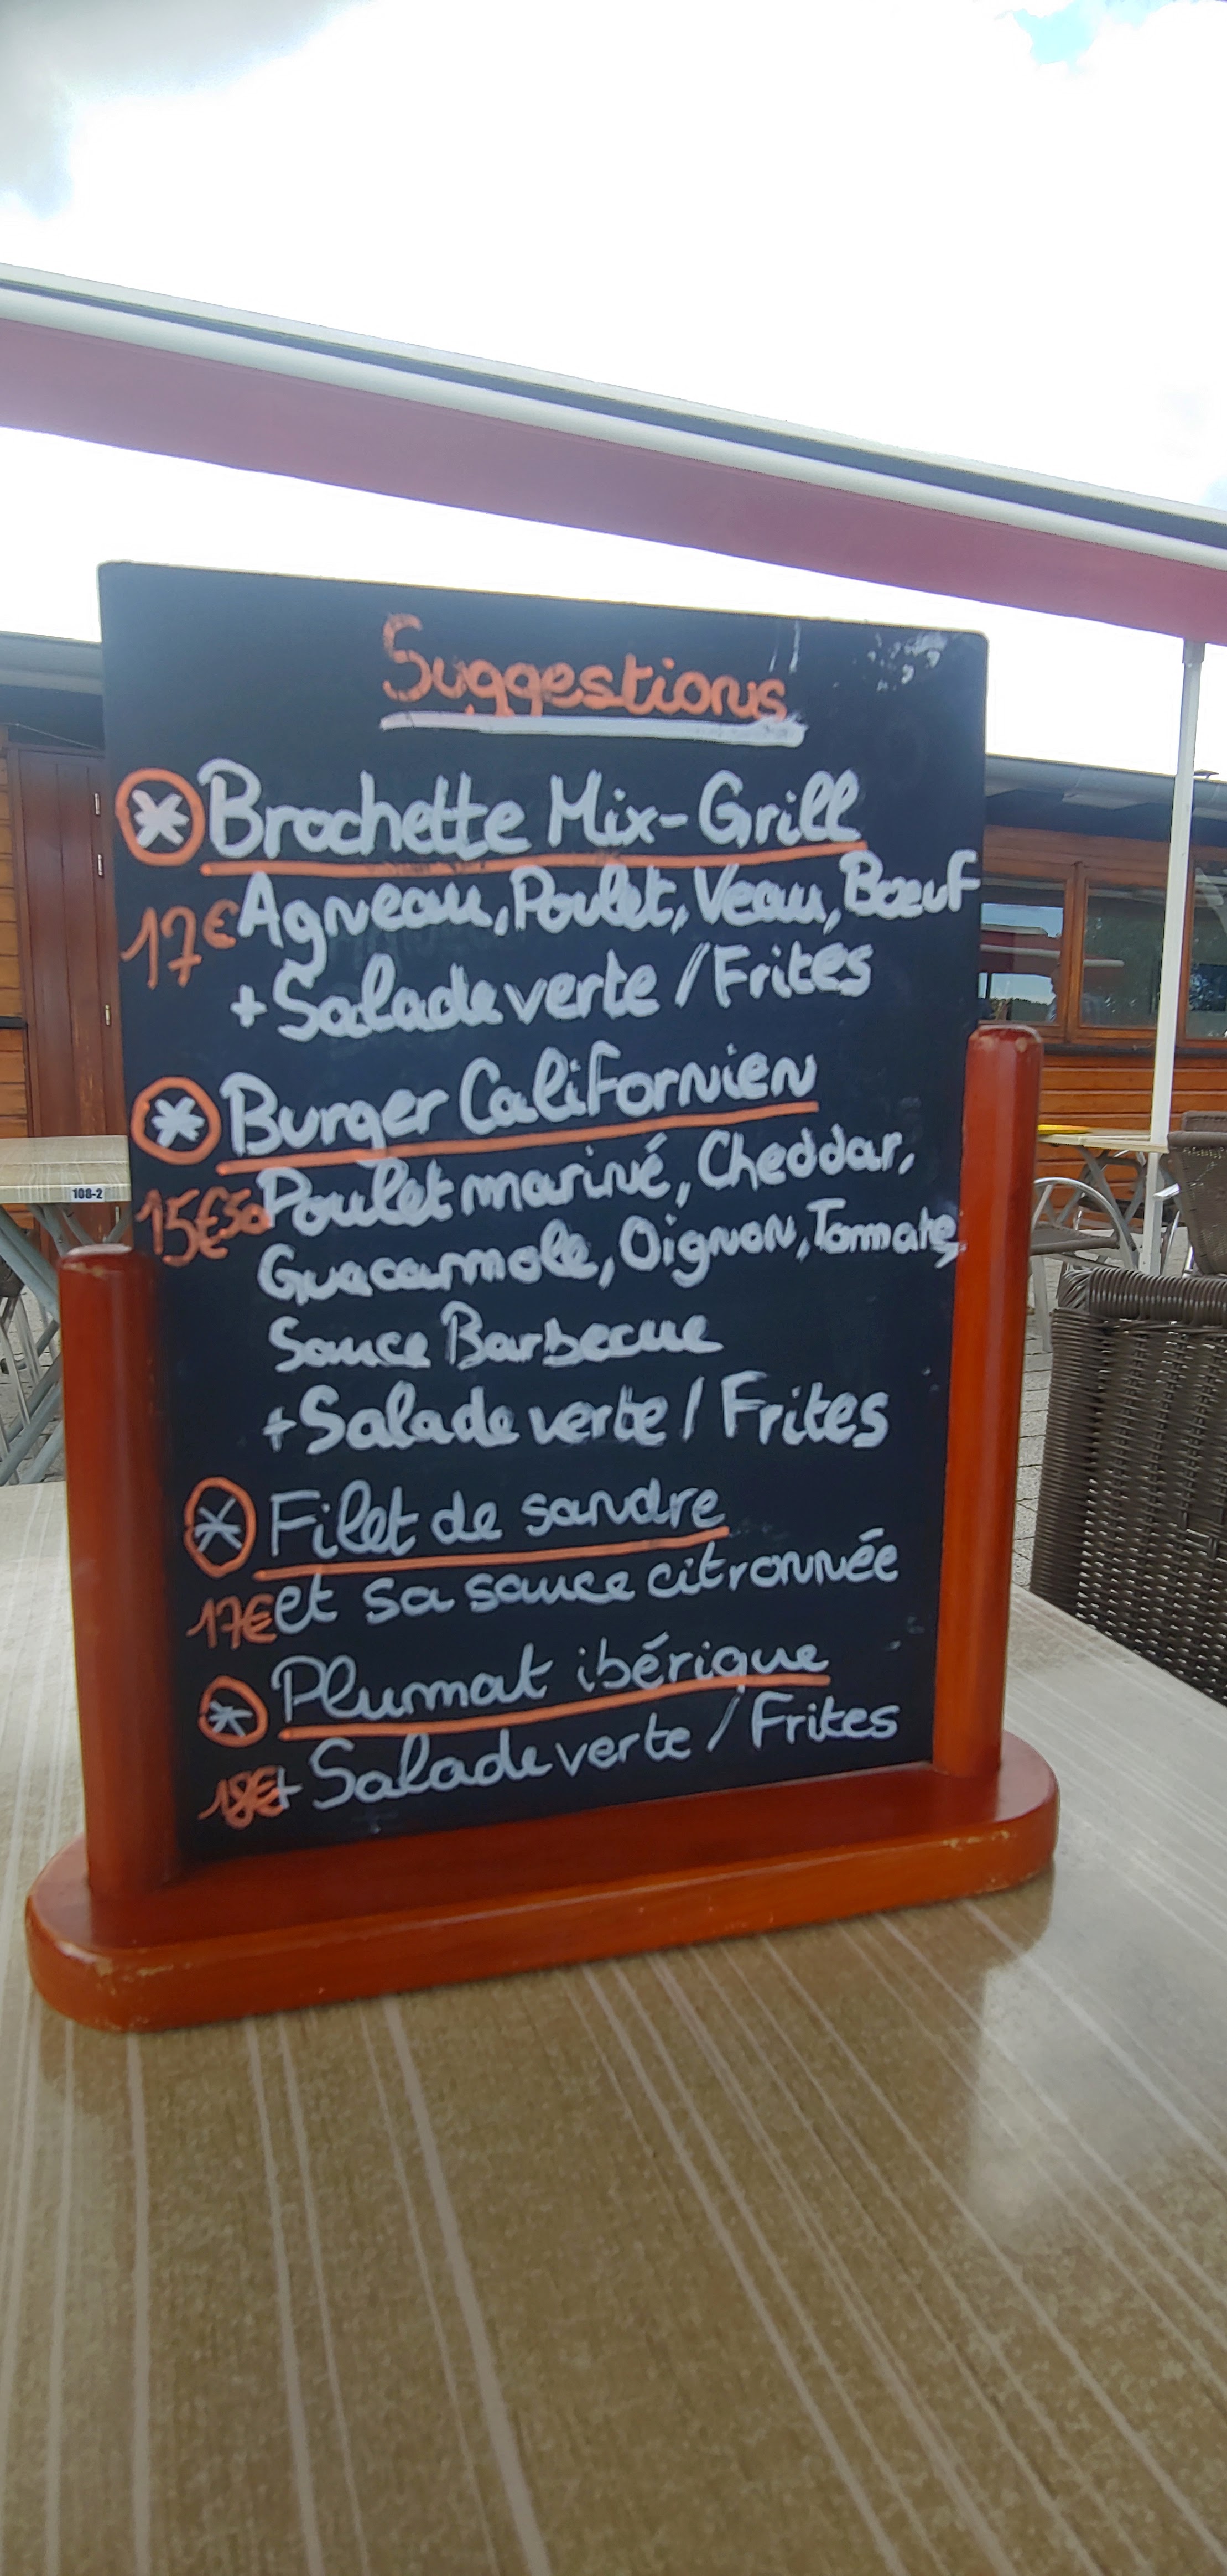 Suggestions
* Brochette Mix-Grill
17€ Agneau, Poulet, Veau, Bœuf
+ Salade verte / Frites
* Burger Californien
15€50 Poulet mariné, Cheddar,
Guacamole, Oignon, Tomate,
Sauce Barbecue
+ Salade verte / Frites
* Filet de sandre
17€ et sa sauce citronnée
* Plumat ibérique
18€ + Salade verte / Frites
108-2